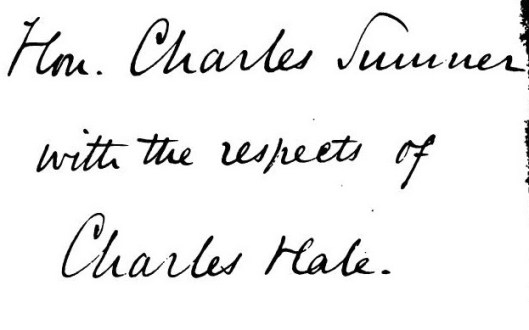 Hon. Charles Sumner
with the respects of
Charles Hale.